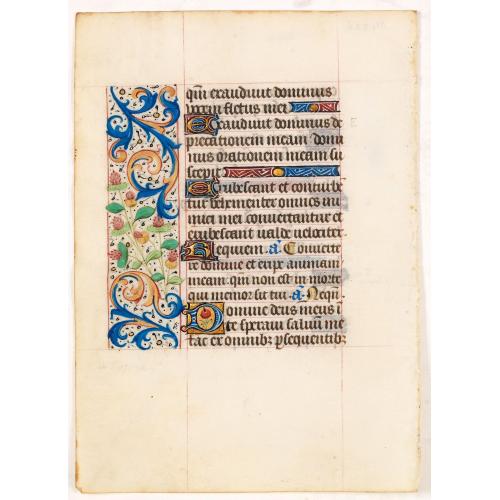 qm̄ exaudivit dominus
vocem fletus mei
Exaudivit dominus de
precationem meam domi
nus orationem meam su
scepit
Erubescant et conturbe
tur vehementer omnes ini
mici mei convertantur et
erubescant valde velociter
Requiem. añ. Converte
re domine et eripe animam
meam qm̄ non est in morte
qui memor sit tui añ. Nequā
Domine deus meus i
te speravi salvum me
fac ex omnibꝫ ꝑsequentibꝫ